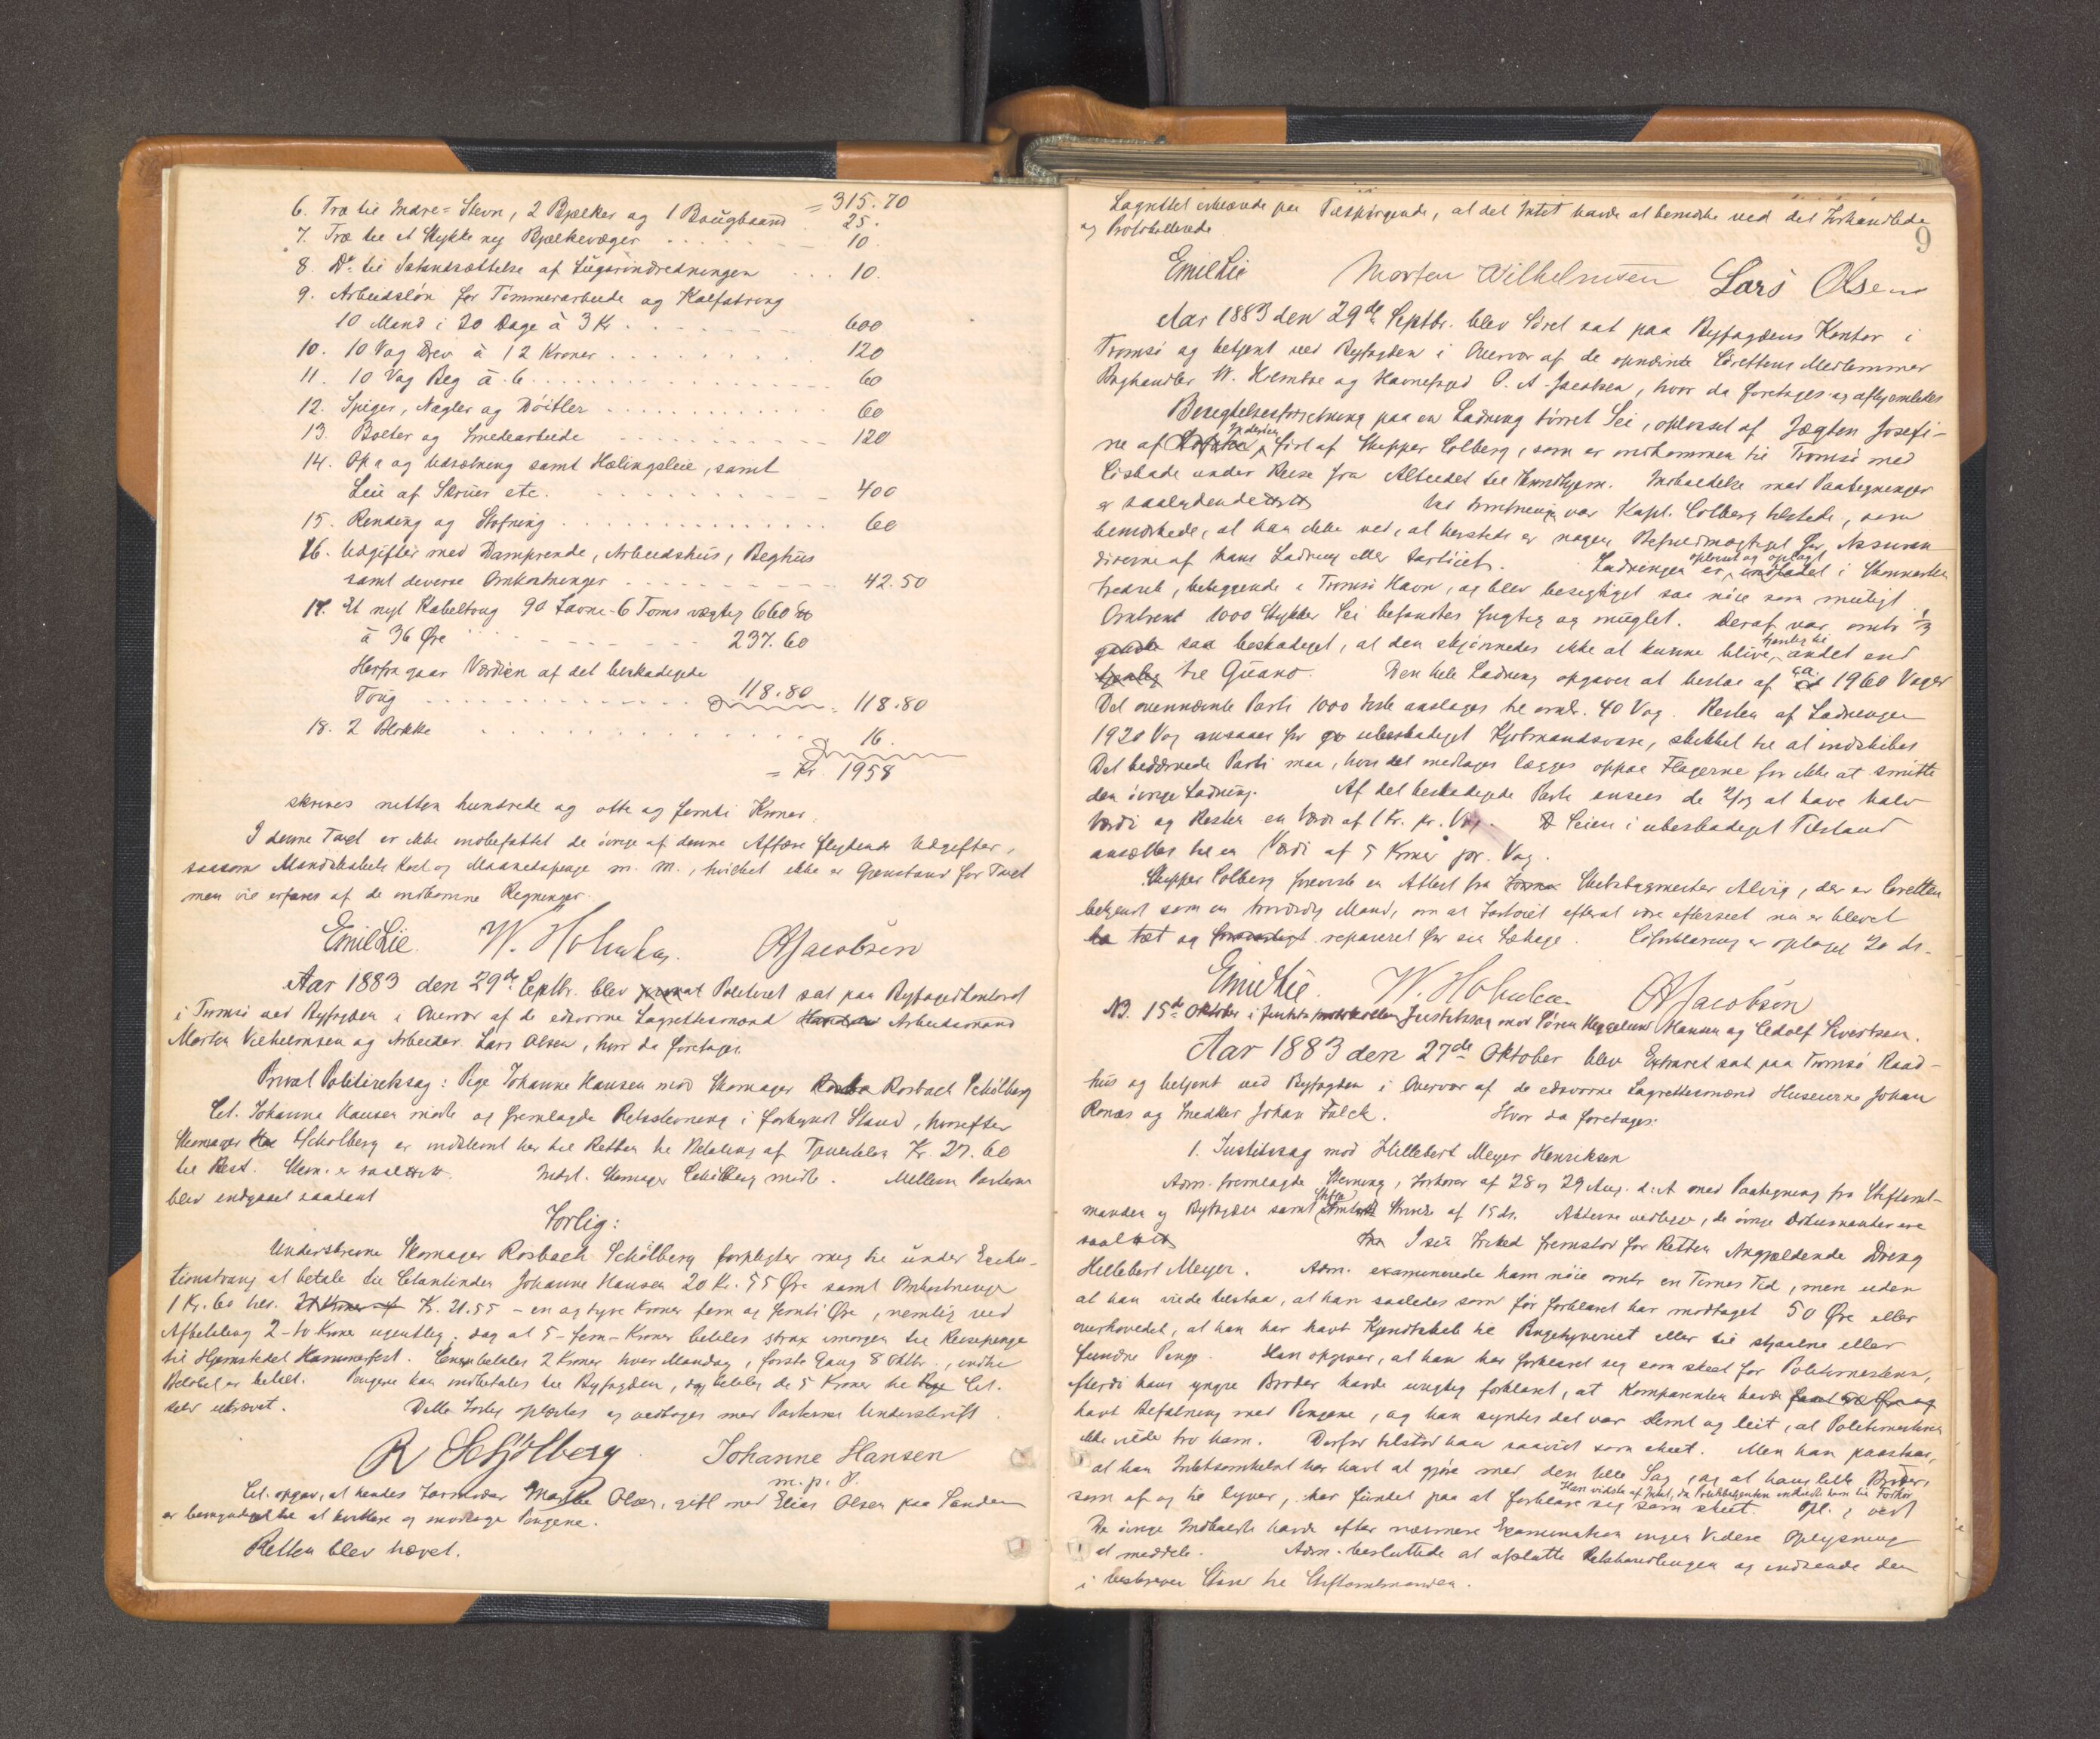 = 315.70
6. Træ til Indre-Stevn, 2 Bjælker og 1 Bougbaand 25.
7. Træ til et Stykke ny Bjælkevæger 10.
8. Do. til Istandsættelse af Lugarindredningen 10.
9. Arbeidsløn for Tømmerarbeide og Kalfatring
10 Mand i 20 Dage à 3 Kr. 600
10. 10 Vog Drev à 12 Kroner 120
11. 10 Vog Beg à 6 60
12. Spiger, Nagler og Döitler 60
13. Bolter og Smedearbeide 120
14. Op og Udsætning samt Halingsleie, samt
Leie af Skruer etc. 400
15. Rending og Stofning 60
16. Udgifter med Damprende, Arbeidshus, Beghus
samt diverse Omkostninger 42.50
17. Et nyt Kabeltoug 90 Favne 6 Toms vægtig 660
à 36 Øre 237.60
Herfra gaar Værdien af det beskadigede
Toug 118.80 = 118.80
18. 2 Blokke 16.
= Kr. 1958
skrives nitten hundrede og otte og femti Kroner.
I denne Taxt er ikke indbefattet de øvrige af denne Affære flydende Udgifter,
saasom Mandskabets Kost og Maanedspenge m. M., hvilket ikke er Gjenstand for Taxt
men vil erfares af de indkomne Regninger.
Emil Lie. W. Holmboe. A Jacobsen
Aar 1883 den 29de Septbr. blev privat Politiret sat paa Byfogedkontoret
i Tromsø ved Byfogden i Overvær af de edsvorne Lagrettesmænd Arbeidsmand
Morten Vilhelmsen og Arbeider Lars Olsen, hvor da foretages
Privat Politiretssag: Pige Johanne Hansen mod Skomager Rosbach Schölberg
Cit. Johanne Hansen mødte og fremlagde Retsstevning i forkyndt Stand, hvorefter
Skomager Schölberg er indstevnt her til Retten til Betaling af Kr. 27.60
til Rest. Stevn. er saal Indst. Skomager Schölberg mødte. Mellem Parterne
blev indgaaet saadant
Forlig:
Underskrevne Skomager Rosbach Schölberg forpligter mig til under Exeku-
tionstvang at betale til Citantinden Johanne Hansen 20 Kr. 55 Øre samt Omkostninger
1 Kr. 60 Kr. 21.55 – en og tyve Kroner fem og femti Øre, nemlig ved
Afbetaling 2 – to Kroner ugentlig; dog at 5 – fem – Kroner betales strax imorgen til Reisepenge
til Hjemstedet Hammerfest. betales 2 Kroner hver Mandag, første Gang 8 Oktbr., indtil
Beløbet er betalt. Pengene kan indbetales til Byfogden, dog betales de 5 Kroner til Cit.
selv ukrævet. Dette Forlig oplæstes og vedtoges med Parternes Underskrift
R Schjölberg Johanne Hansen
m. p. P.
Cit. opgav, at hendes Marthe Olsen, gift med Elias Olsen paa Sanden
er bemyndiget til at kvittere og modtage Pengene.
Retten blev hævet.
9
Lagrettet erklærede paa Tilspørgende, at det Intet havde at bemærke ved det Forhandlede
og Protokollerede
Emil Lie Morten Wilhelmsen Lars Olsen
Aar 1883 den 29de Septbr. blev Søret sat paa Byfogdens Kontor i
Tromsø og betjent ved Byfogden i Overvær af de opnævnte Sørettens Medlemmer
Boghandler W. Holmboe og Havnefoged O. A. Jacobsen, hvor da foretages og afhjemledes
Besigtelsesforretning paa en Ladning tørret Sei, oplosset af Jægten Josefi-
ne af ført af Skipper Colberg, som er indkommen til Tromsø med
Søskade under Reise fra Altvedet til Throndhjem. Indkaldelse med Paategninger
er saalydende Ved Forretningen var Kapt. Colberg tilstede, som
bemærkede, at han ikke ved, at herstede er nogen Befuldmægtiget for Assuran-
dørerne af hans Ladning eller Fartøiet. Ladningen er oplosset og oplagt i Skonnerten
Fredrik, beliggende i Tromsø Havn, og blev besigtiget saa nøie som muligt.
Omtrent 1000 Stykker Sei befandtes fugtig og muglet. Deraf var omtr 1/3
saa beskadiget, at den skjønnedes ikke at kunne blive tjenlig til andet end
til Guano. Den hele Ladning opgaves at bestaa af ca. 1960 Voger
Det ovennævnte Parti 1000 Fiske anslages til omtr. 40 Vog. Resten af Ladningen
1920 Vog ansaaes for ubeskadiget Kjøbmandsvare, skikket til at indskibes
Det bedærvede Parti maa, hvis det medtages lægges oppaa Flagerne for ikke at smitte
den øvrige Ladning. Af det beskadigede Parti ansees de 2/3 at have halv
Værdi og Resten en Værdi af 1 Kr. pr. Vog. Seien i ubeskadiget Tilstand
ansættes til en Værdi af 5 Kroner pr. Vog.
Skipper Colberg foreviste en Attest fra Skibsbygmester Alvig, der er Søretten
bekjendt som en troværdig Mand, om at Fartøiet efterat være efterseet nu er blevet
tæt og repareret for sin Lækage. Søforklaring er optaget 20 ds.
Emil Lie. W. Holmboe A Jacobsen
NB. 15de Oktober i Justitssag mod Søren Hansen og Cedolf Sivertsen.
Aar 1883 den 27de Oktober blev Extraret sat paa Tromsø Raad-
hus og betjent ved Byfogden i Overvær af de edsvorne Lagrettesmænd Huseierne Johan
Ronæs og Snedker Johan Falck. Hvor da foretages:
1. Justitssag mod Hillebert Meyer Henriksen
Adm. fremlagde Stevning, Forhører af 28 og 29 Aug. d. A. med Paategning fra Stiftamt-
manden og Byfogden samt Stifts Skrivelse af 15 ds. Akterne vedlægges, de øvrige Dokumenter ere
saal. I sin Frihed fremstod for Retten Angjældende Dreng
Hillebert Meyer. Adm. examinerede ham nøie omtr en Times Tid, men uden
at han vilde tilstaa, at han saaledes som før forklaret har modtaget 50 Øre eller
overhovedet, at han har havt Kjendskab til Pengetyveriet eller til stjaalne eller
fundne Penge. Han opgiver, at han har forklaret sig som skeet for Politimesteren,
efterdi hans yngre Broder havde urigtig forklaret, at Kompanniet havde
havt Befatning med Pengene, og han syntes det var slemt og leit, at Politimesteren
ikke vilde tro ham. Derfor tilstod han saavidt som skeet. Men han paastaar,
at han Intetsomhelst har havt at gjøre med den hele Sag, og at hans lille Broder,
som af og til lyver, har fundet paa at forklare sig som skeet. Han vidste af Intet, da Politibetjenten indkaldte ham til Forhør. Opl. og vedt
De øvrige Indkaldte havde efter nærmere Examination ingen Videre Oplysning
at meddele. Adm. besluttede at afslutte Retshandlingen og indsende den
i beskreven Stand til Stiftamtmanden.